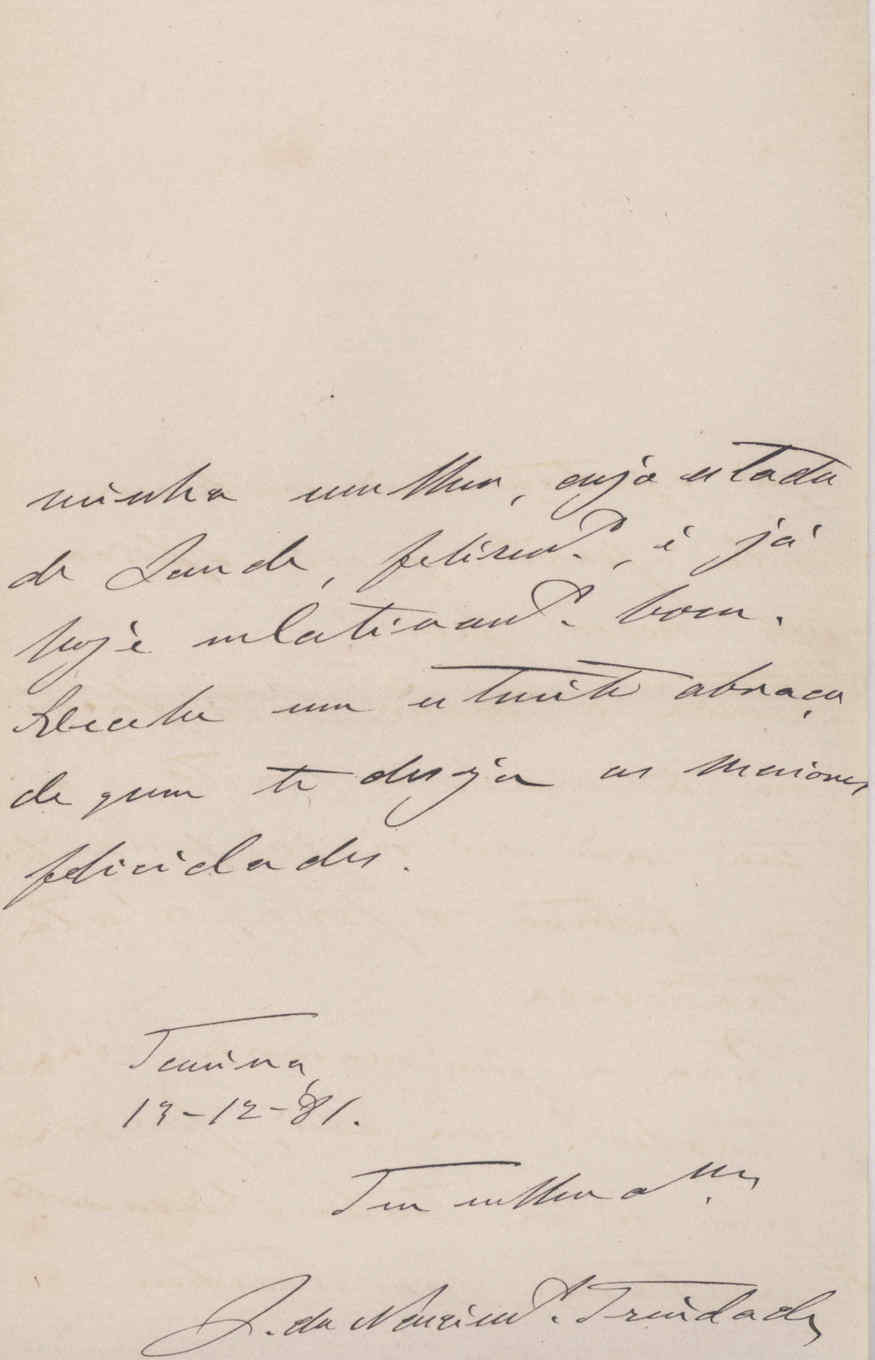 minha mulher, cujo estado
de saude, felism.te, é já
hoje relativam.te bom.
Recebe um estreito abraço
de quem te deseja as maiores
felicidades.
13-12-81.
Teu velho am.º
J. do Nascim.to Trindade